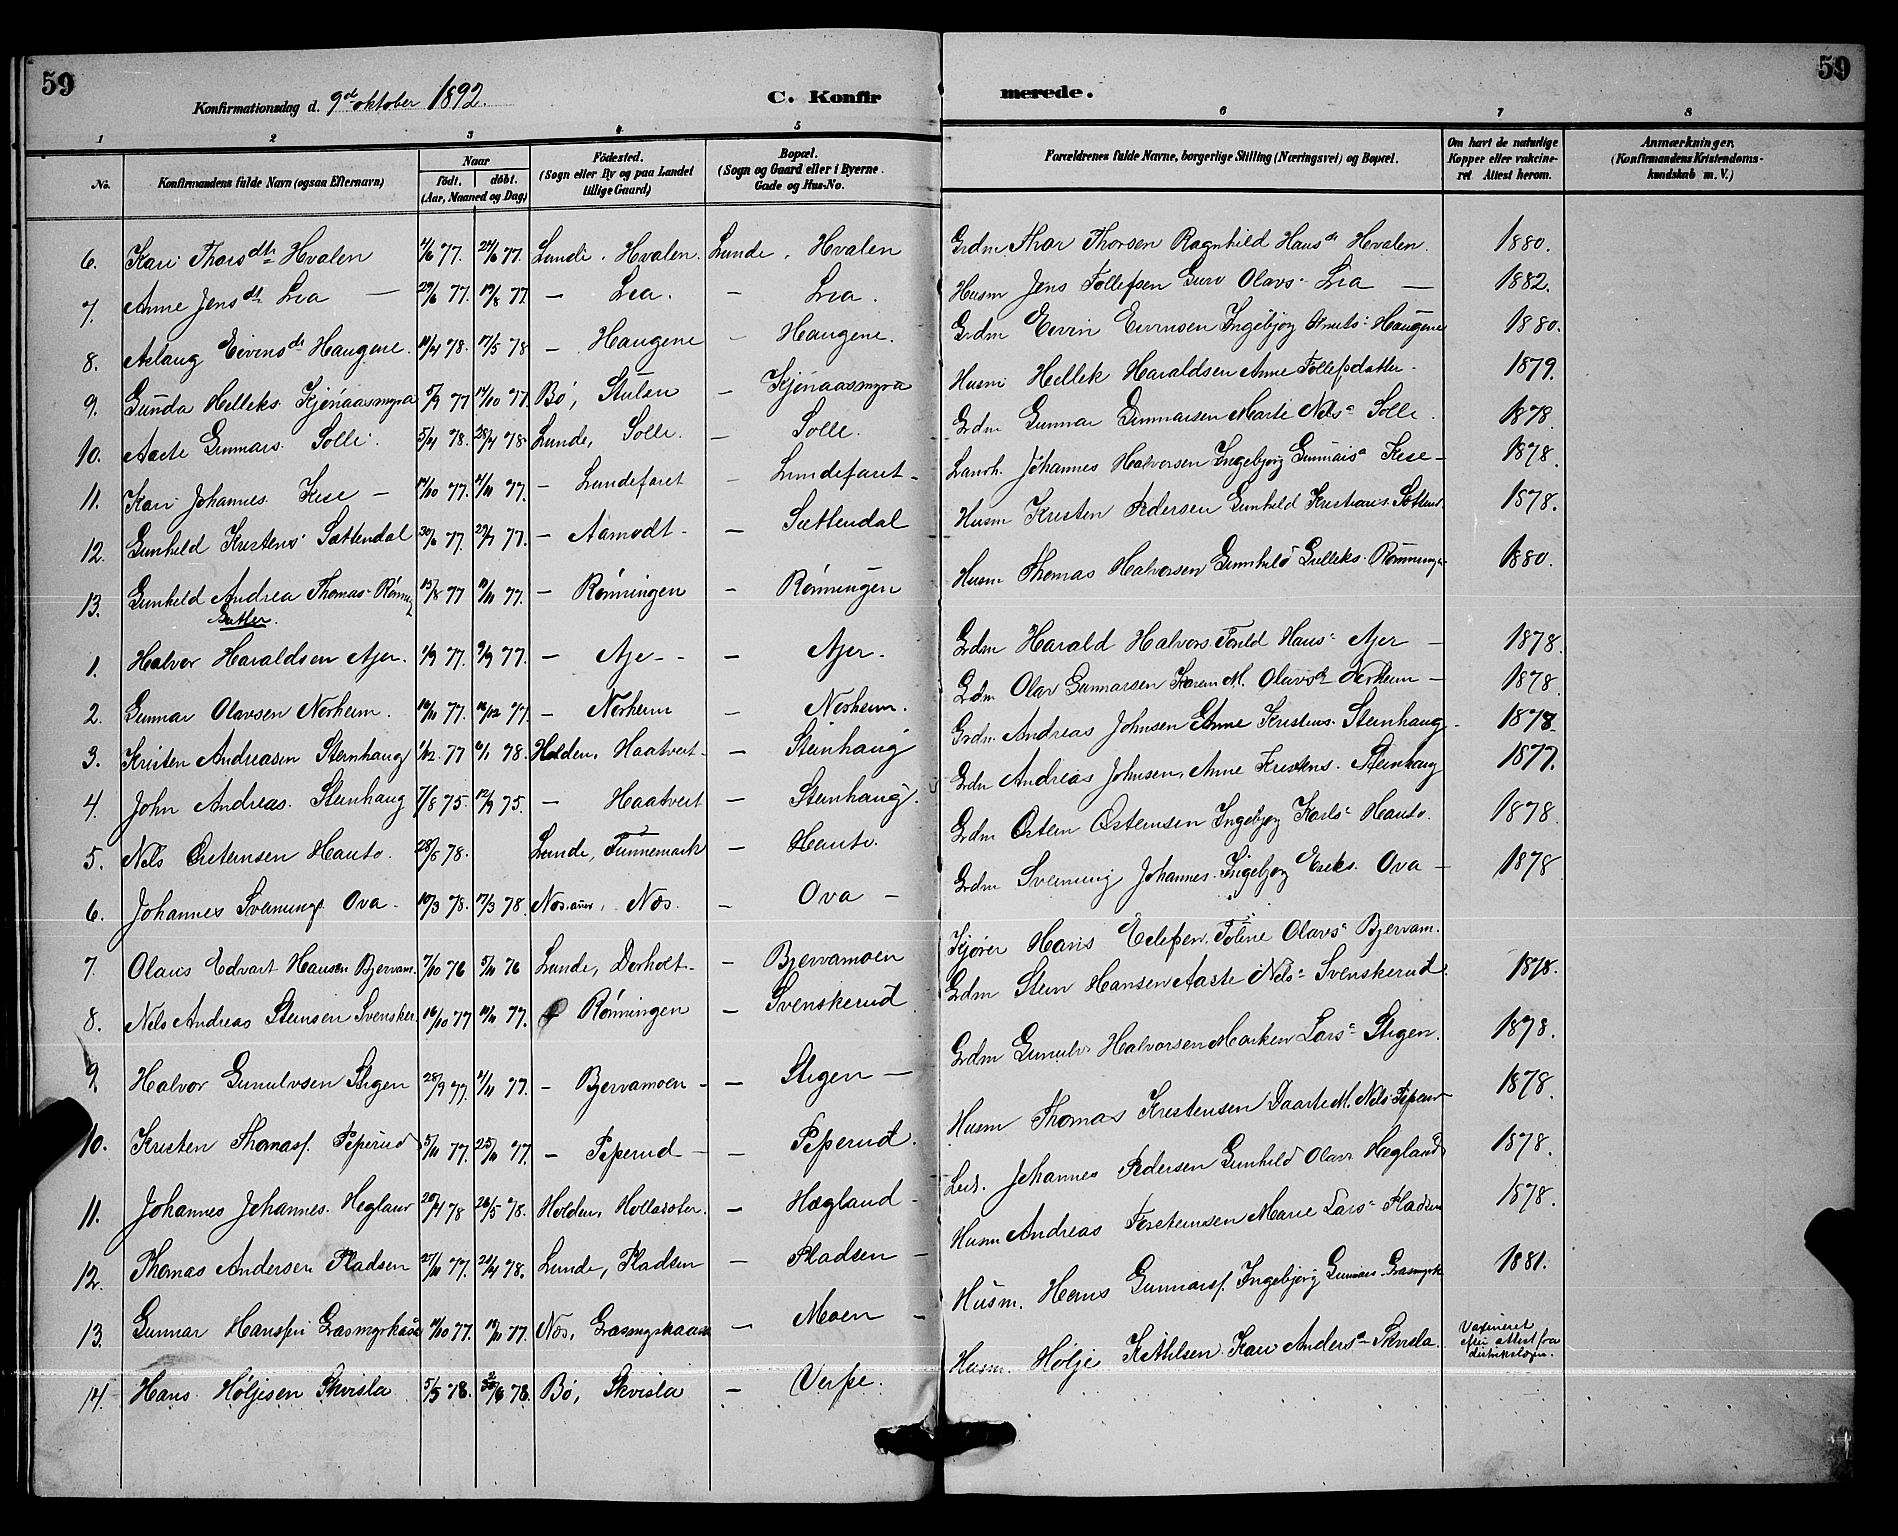 59
59
Konfirmationsdag d. 9d oktober 1892.
C. Konfirmerede.
1 2 3 4 5 6 7 8
No. Konfirmandens fulde Navn (ogsaa Efternavn) Naar født. døbt. (Aar, Maaned og Dag) Fødested. (Sogn eller By og paa Landet tillige Gaard) Bopæl. (Sogn og Gaard eller i Byerne Gade og Hus-No. Forældrenes fulde Navne, borgerlige Stilling (Næringsvei) og Bopæl. Om havt de naturlige Kopper eller vakcineret Attest herom. Anmærkninger. (Konfirmandens Kristendomskundskab m. V.)
6. Kari Thorsdtr Hvalen 77. 77. Lunde, Hvalen. Lunde, Hvalen Grdm Thor Thorsen Ragnhild Hansdr Hvalen. 1880.
7. Anne Jensdt Lia — 29/6 77. 19/8 77. — Lia. — Lia. Husm Jens Tollefsen Guro Olavs- Lia — 1882.
8. Aslaug Eivinsdr Haugene. 78. 17/5 78 — Haugene — Haugene. Grdm Eivin Eivinsen Ingebjøg Knuts- Haugene 1880.
9. Gunda Helleks. Kjønaasmyra 77 14/10 77. Bø, Stulen — Kjønaasmyra Husm Hellek Haraldsen Anne Tollefsdatter. 1879.
10. Aaste Gunnars. Solli. 5/4 78. 28/4 78. Lunde, Solli. — Solli. Grdm Gunnar Gunnarsen Marte Nels- Solli. 1878
11. Kari Johannes. Kise — 77. 77. — Lundefaret — Lundefaret. Johannes Halvorsen Ingebjørg Gunnars- Kise — 1878.
12. Gunhild Kristens. Sættendal 30/6 77. 29/7 77. — Aamodt — Sættendal Husm Kristen Pedersen Gunhild Kristians. 1878.
13. Gunhild Andrea Thomas- 77 77. — Rønningen — Rønningen Husm Thomas Halvorsen Gunnhild Gulleks. 1880.
Gutter.
1. Halvor Haraldsen Ajer. 1/9 77. 9/9 77. — Aje- — Ajer. Grdm Harald Halvors. Hans- Ajer — 1878.
2. Gunnar Olavsen Norheim. 77. 16/12 77. — Norheim — Norheim. Grdm Olav Gunnarsen Karen M. Olavsdr Norheim — 1878.
3. Kristen Andreasen Steinhaug 1/12 77 6/1 78. Holden, Haatveit — Steinhaug Grdm. Andreas Johnsen Anne Kristens. Steinhaug. 1878.
4. John Andreas. Steinhaug 7/8 75. 12/9 75. — Haatveit — Steinhaug. Grdm Andreas Johnsen, Anne Kristens. Steinhaug 1877.
5. Nils Østensen Hauto. 28/5 78. Lunde, Funnemark — Hauto. Grdm Østen Østensen Ingebjøg Karls- Hauto. 1878.
6. Johannes Svenungs. Ova. 10/3 78. 17/3 78. Næs. — Ova — Grdm Svenung Johannes. Ingebjøg Eriks. Ova — 1878
7. Olaus Edvart Hansen Bjervam. 7/10 76 5/11 76 Lunde, Dorholt. — Bjervamoen Kjører Hans Olavs- Bjervam.
8. Nils Andreas Steinsen Svensker. 16/10 77 77. Rønningen — Svenskerud Grdm Stein Hansen Aaste Nils- Svenskerud. 1878.
9. Halvor Gunulvsen Stigen 28/9 77. 77. — Bjervamoen — — Stigen — Grdm Gunulv Halvorsen Marken Lars- Stigen. 1878.
10. Kristen Thomass. Peperud 5/11 77. 25/11 77. — Peperud — — Peperud. Husm Thomas Kristensen Daarte M. Nils 1878.
11. Johannes Johannes. 20/4 78 26/5 78. Holden, — Hægland. Johannes Pedersen Gunhild Olavs Hegland 1878.
12. Thomas Andersen Pladsen 27/11 77. 78. Lunde, Pladsen — Pladsen — Husm Andreas Torsteinsen Marie Lars- Pladsen 1878.
13. Gunnar Hanssen 77. 77. Næs, — Moen — Husm. Hans Gunnarss. Ingebjørg Gunnars. 1881.
14. Hans Høljesen Skvisla 5/5 78. 78. Bø, Skvisla — Verpe. Husm. Hølje Kittilsen Kari Andersdr Skvisla. Vaxineret attest fra